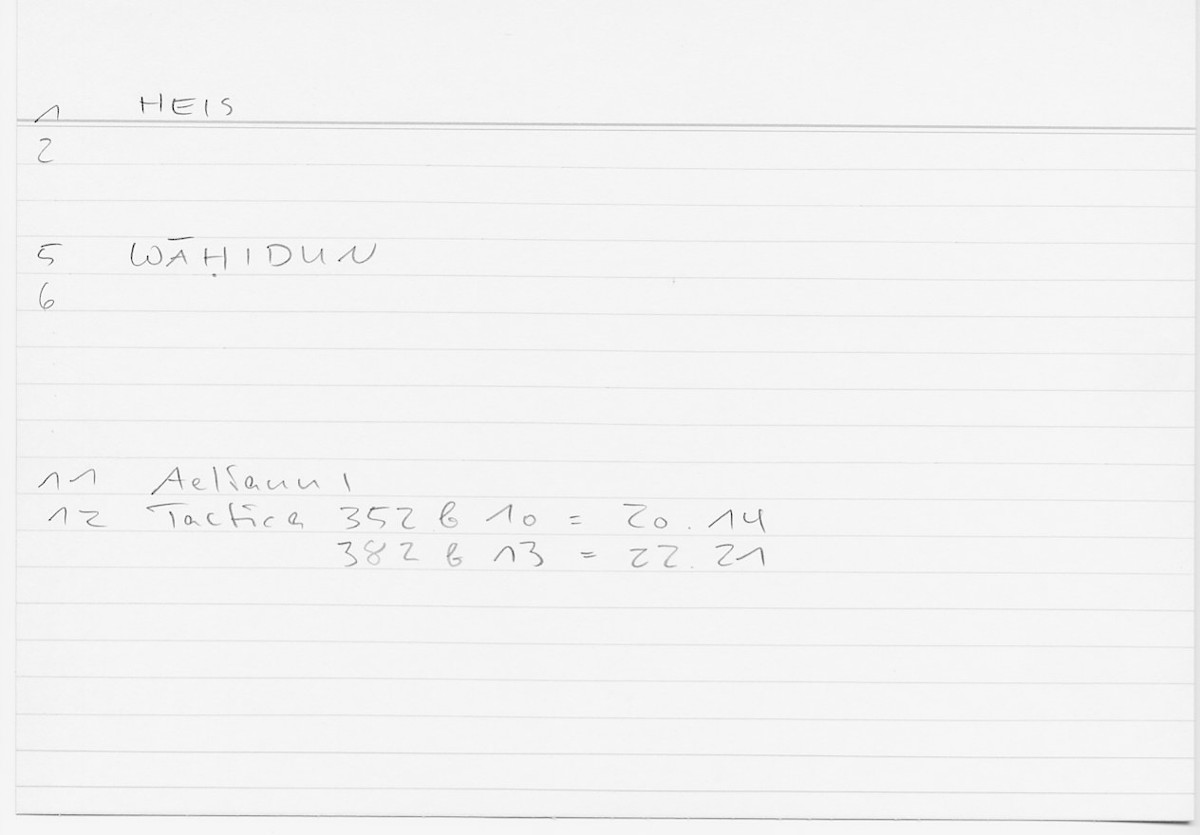 1 HEIS
2
5 WĀḤIDUN
6
11 Aelianus 1
12 Tactica 352 b 10 = 20.14
382 b 13 = 22.21